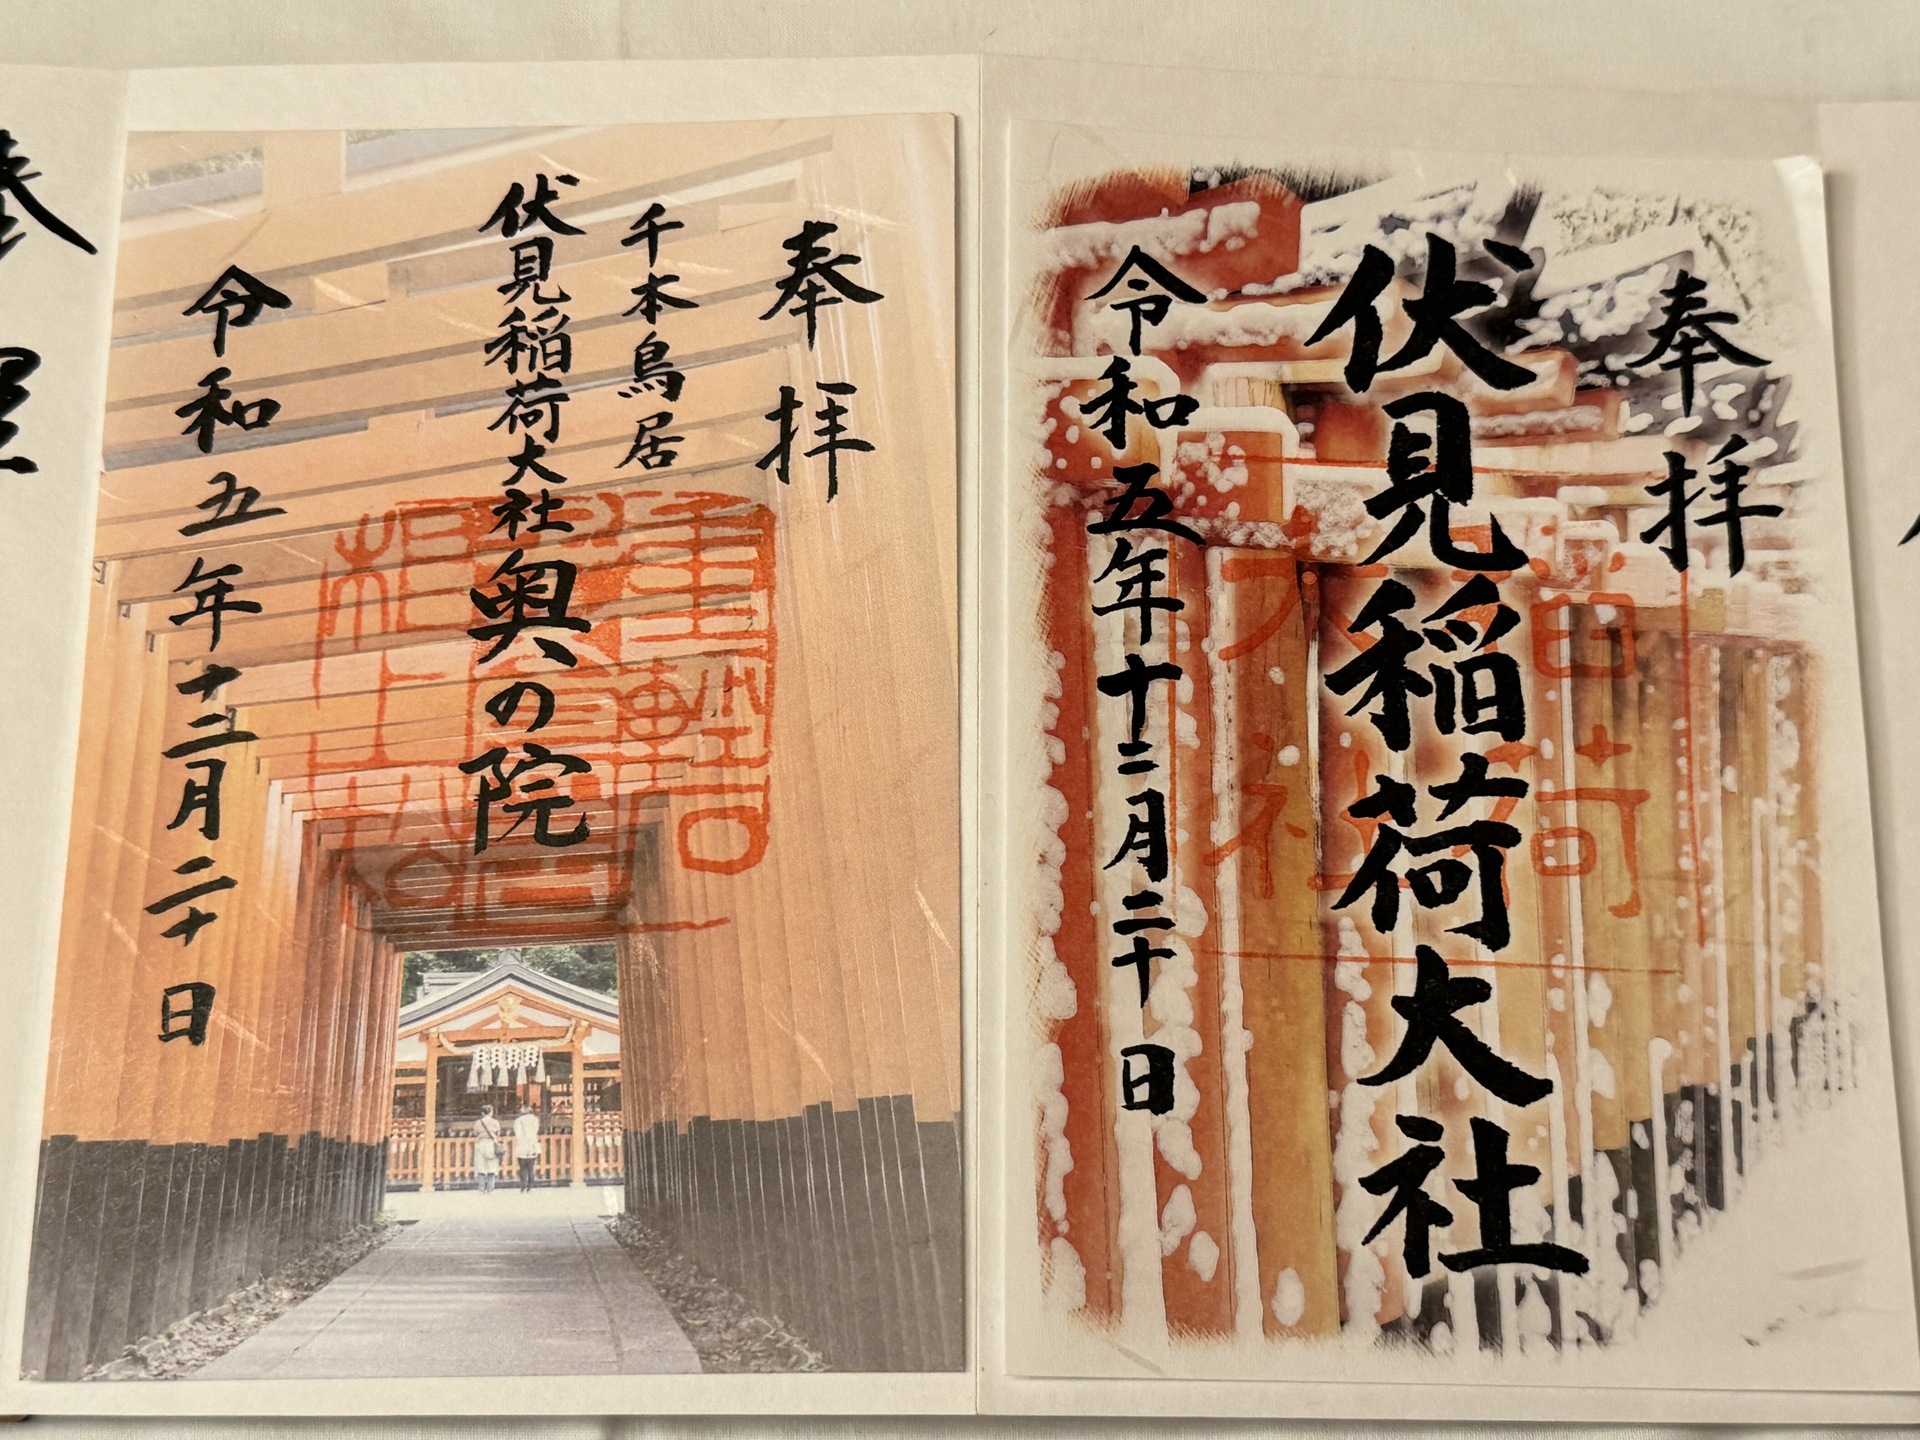 奉拝
伏見稲荷大社
令和五年十二月二十日
奉拝
千本鳥居
伏見稲荷大社奥の院
令和五年十二月二十日
奉